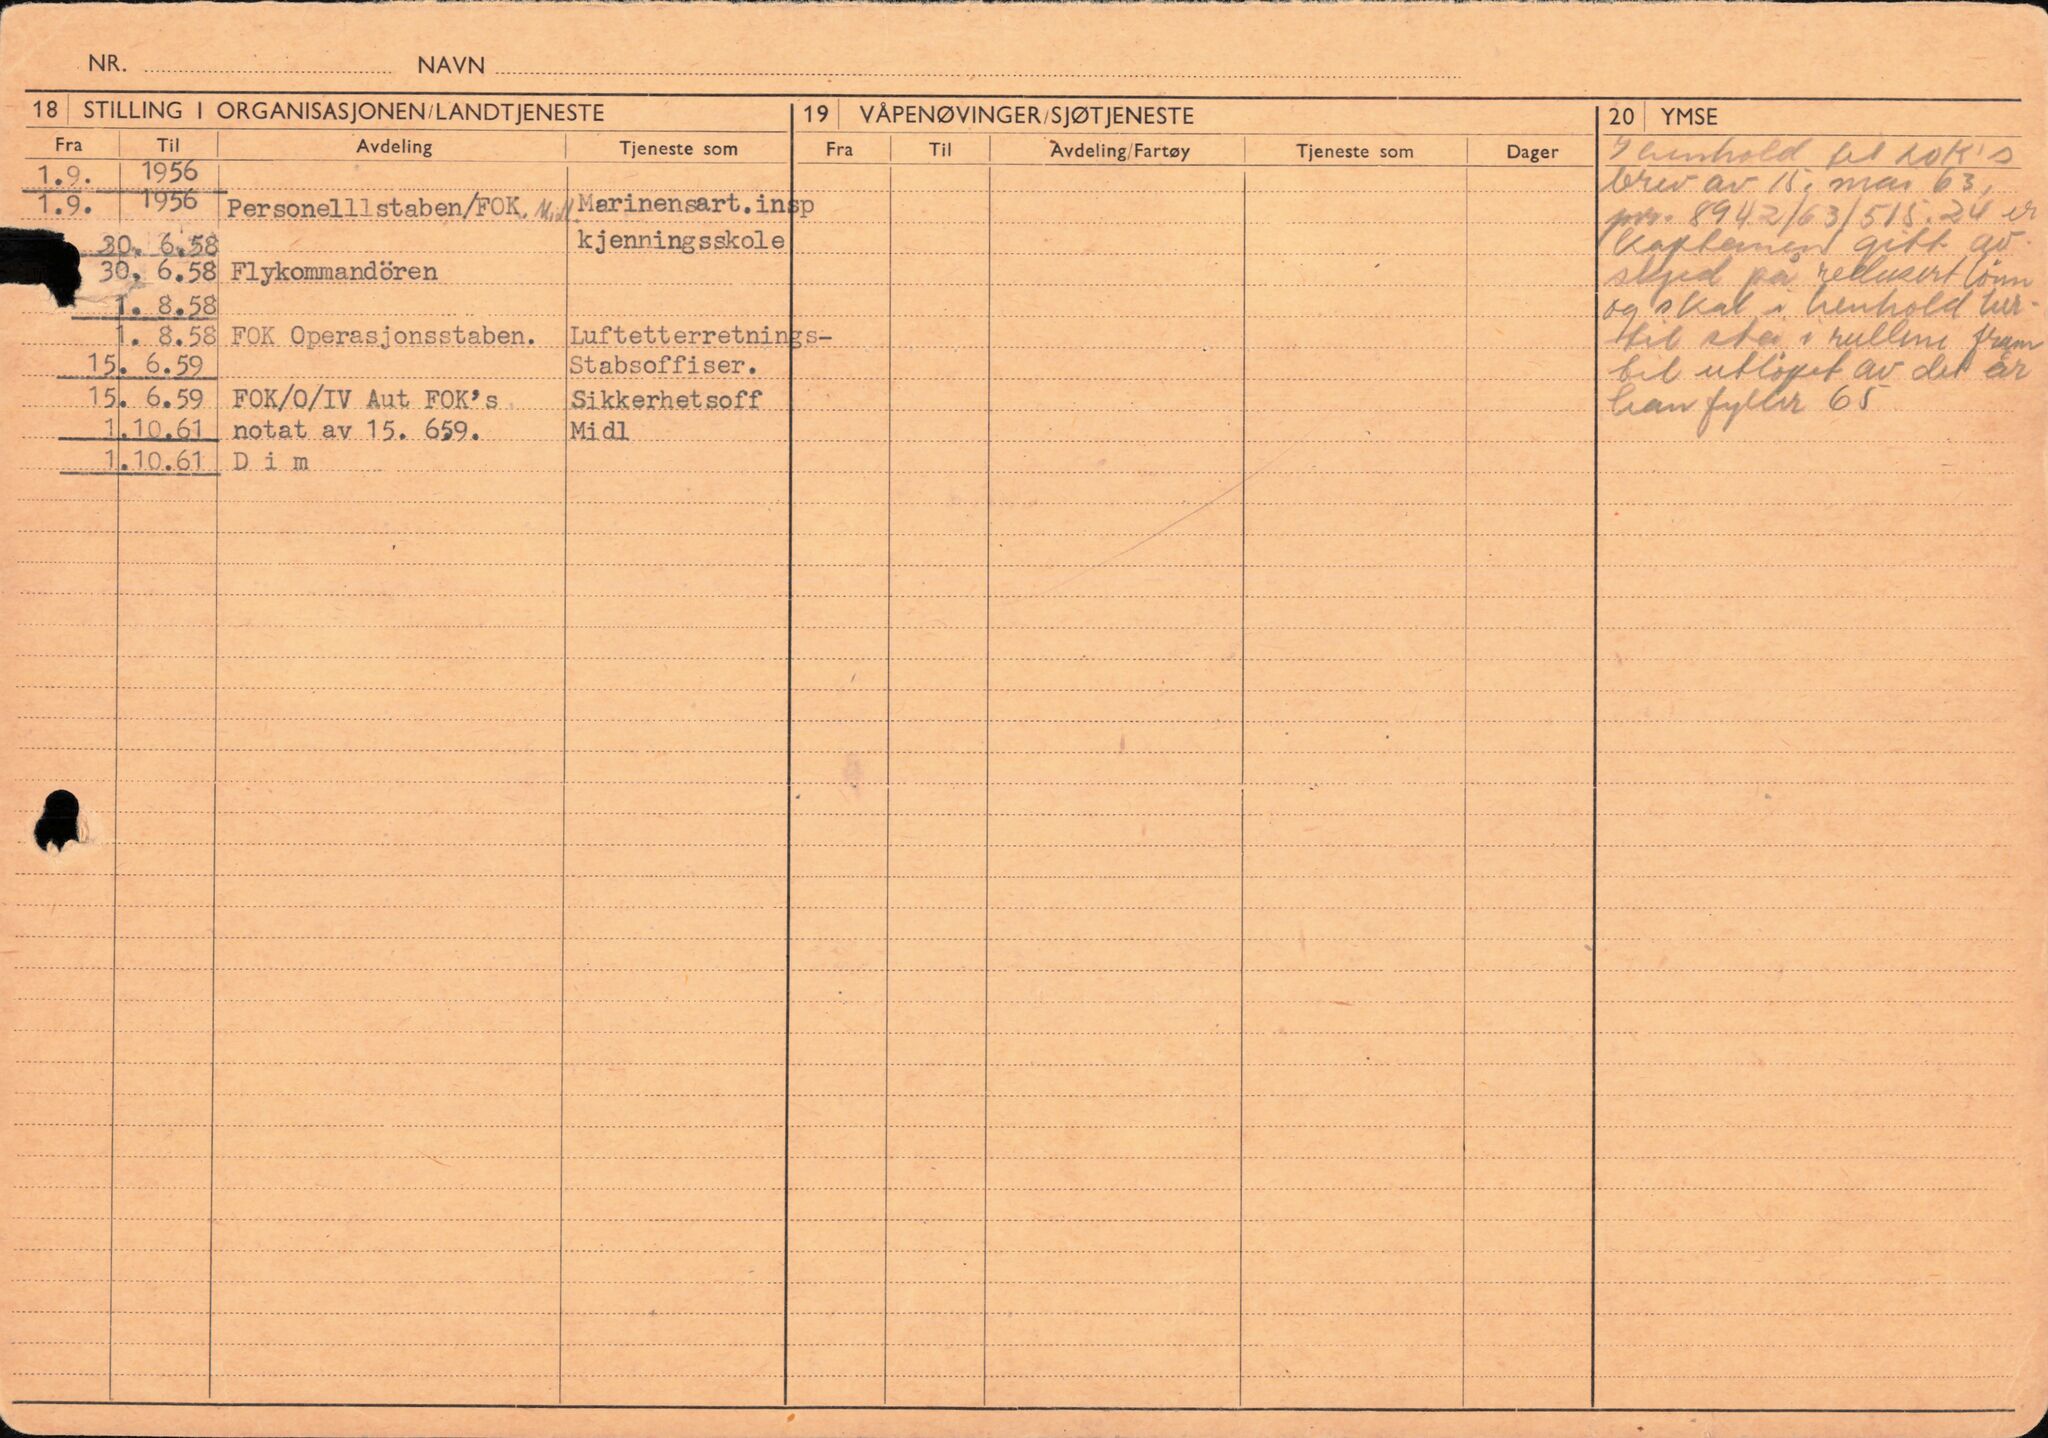 NR. NAVN
18 STILLING I ORGANISASJONEN/LANDTJENESTE
Fra Til Avdeling Tjeneste som
1.9. 1956
1.9. 1956 Personelllstaben/FOK. Midl. Marinensart.insp
30. 6.58 kjenningsskole
30. 6.58 Flykommandören
1. 8.58
1. 8.58 FOK Operasjonsstaben. Luftetterretnings-
15. 6.59 Stabsoffiser.
15. 6.59 FOK/O/IV Aut FOK's Sikkerhetsoff
1.10.61 notat av 15. 659. Midl
1.10.61 D i m
19 VÅPENØVINGER/SJØTJENESTE
Fra Til Avdeling/Fartøy Tjeneste som Dager
20 YMSE
I henhold til LOK's
brev av 15. mai 63,
8942/63/515.24 er
Kapteinen gitt av-
skjed på redusert lönn
og skal i henhold her-
til stå i rullene fram
til utlöpet av det år
han fyller 65